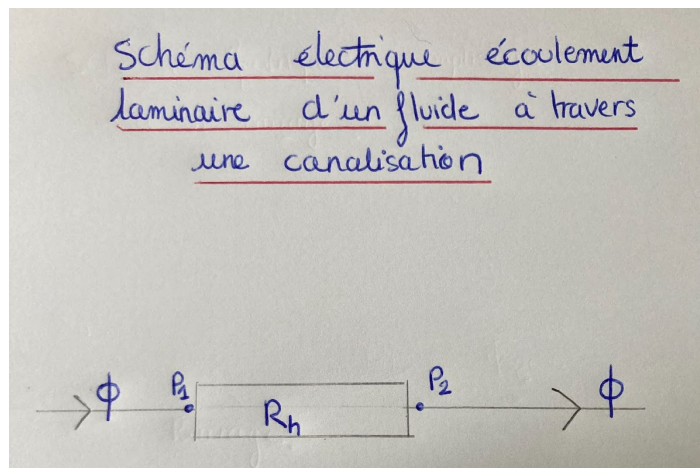 Schéma électrique écoulement
laminaire d'un fluide à travers
une canalisation
ϕ P1 Rh P2 ϕ